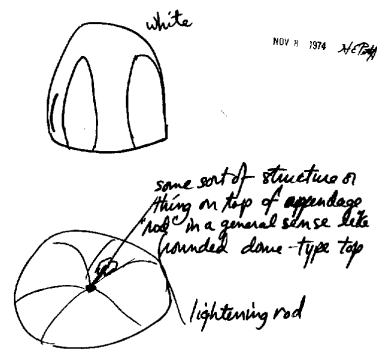 white
NOV 8 1974
some sort of structure or
thing on top of appendage
"rod" in a general sense like
rounded dome-type top
lightening rod